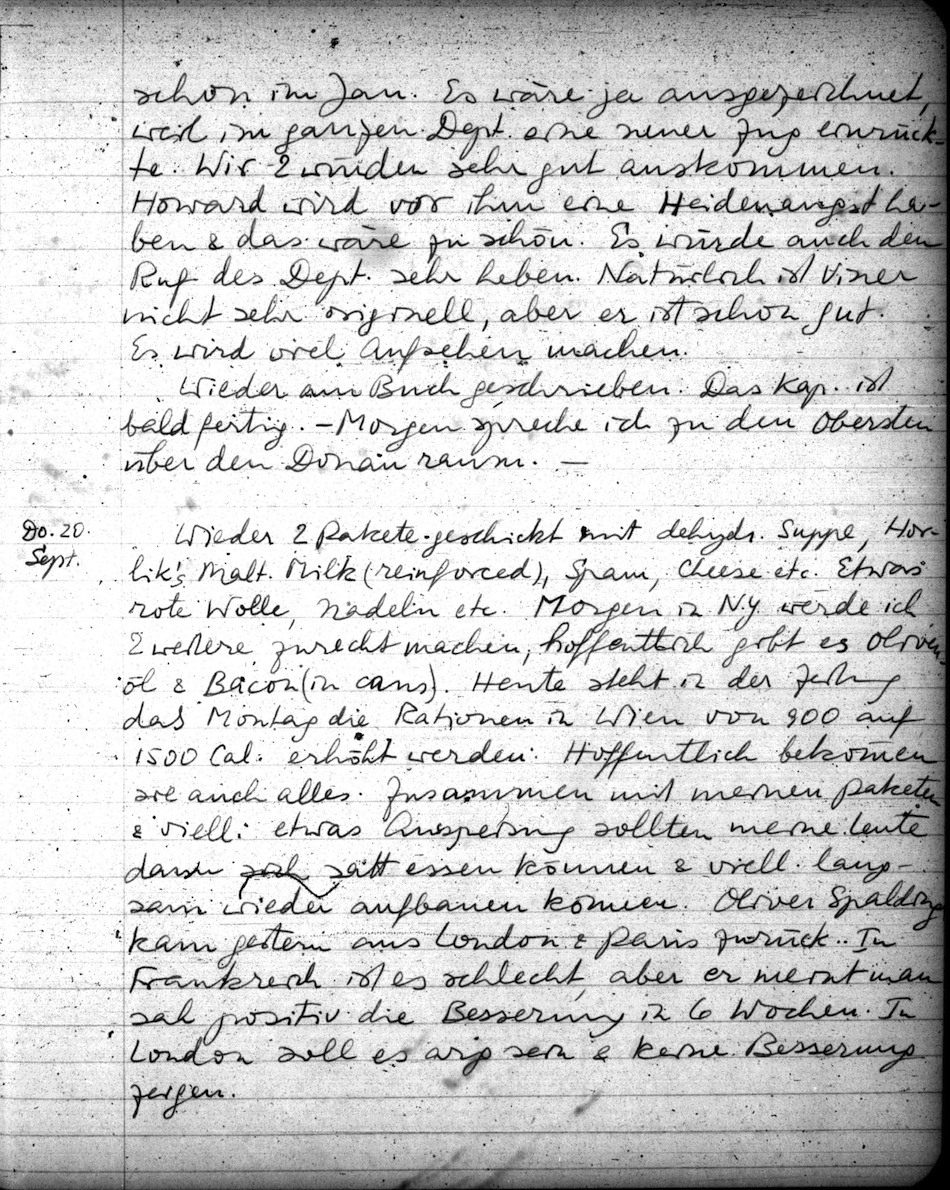 schon im Jan. Es wäre ja ausgezeichnet,
weil im ganzen Dept. eine neuer Zug einrück-
te. Wir 2 würden sehr gut auskommen.
Howard wird vor ihm eine Heidenangst ha-
ben & das wäre zu schön. Es würde auch den
Ruf des Dept. sehr heben. Natürlich ist Viner
nicht sehr originell, aber er ist schon gut.
Es wird viel Aufsehen machen.
Wieder am Buch geschrieben. Das Kap. ist
bald fertig. – Morgen spreche ich zu den Obersten
über den Donauraum. —
Do. 20.
Sept.
Wieder 2 Pakete geschickt mit dehydr. Suppe, Hor-
lik's Malt. Milk (reinforced), Spam, Cheese etc. Etwas
rote Wolle, Nadeln etc. Morgen in N.Y. werde ich
2 weitere zurecht machen, hoffentlich gibt es Oliven
öl & Bacon (in cans). Heute steht in der Zeitung
das Montag die Rationen in Wien von 900 auf
1500 Cal. erhöht werden. Hoffentlich bekomen
sie auch alles. Zusammen mit meinen Paketen
& viell. etwas Ausspeisung sollten meine Leute
dann satt essen können & viell. lang-
sam wieder aufbauen können. Oliver Spalding
kam gestern aus London & Paris zurück. In
Frankreich ist es schlecht, aber er meint man
sah positiv die Besserung in 6 Wochen. In
London soll es arg sein & keine Besserung
zeigen.